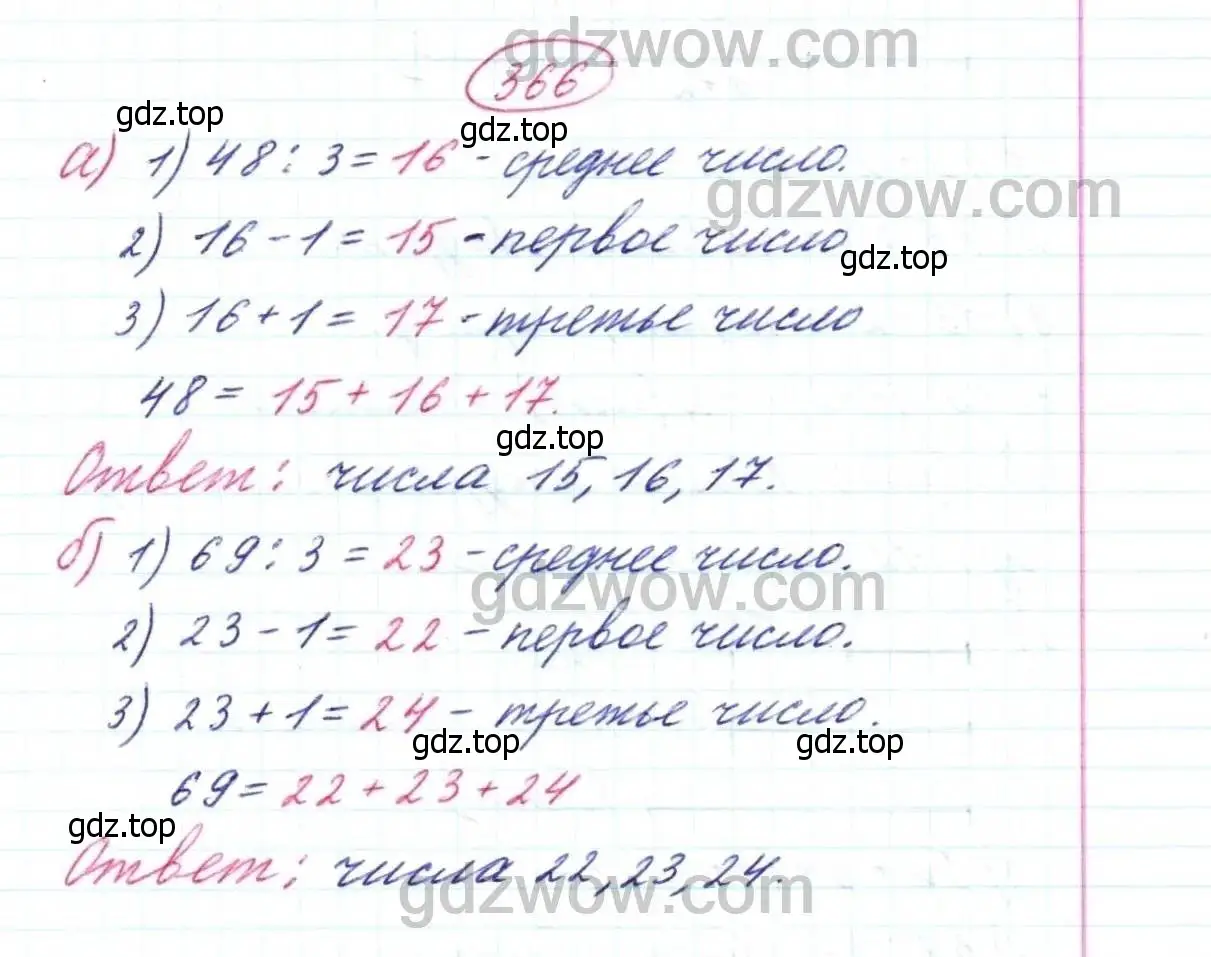 gdzwow.com
366
gdz.top
gdz.top
а) 1) 48 : 3 = 16 - среднее число.
gdzwow.com
2) 16 - 1 = 15 - первое число
gdz.top
3) 16 + 1 = 17 - третье число
48 = 15 + 16 + 17.
gdz.top
Ответ: числа 15, 16, 17.
б) 1) 69 : 3 = 23 - среднее число.
gdzwow.com
2) 23 - 1 = 22 - первое число.
3) 23 + 1 = 24 - третье число.
gdz.top
gdz.top
69 = 22 + 23 + 24
gdz.top
Ответ: числа 22, 23, 24.
gdzwow.com